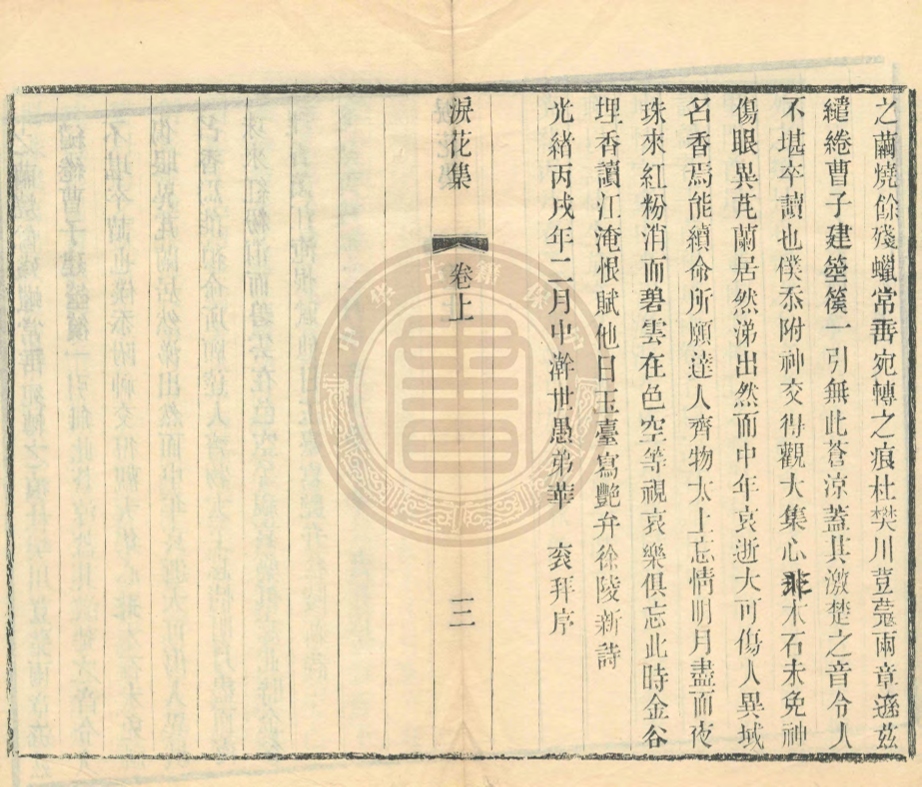 之繭燒餘殘蠟常垂宛轉之痕杜樊川荳蔻兩章遜茲
繾綣曹子建箜篌一引無此蒼涼蓋其激楚之音令人
不堪卒讀也僕忝附神交得觀大集心非木石未免神
傷眼異芃蘭居然涕出然而中年哀逝大可傷人異域
名香焉能續命所願達人齊物太上忘情明月盡而夜
珠來紅粉消而碧雲在色空等視哀樂俱忘此時金谷
埋香讀江淹恨賦他日玉臺寫艷弁徐陵新詩
光緒丙戌年二月中澣世愚弟華　袞拜序
淚花集
卷上
三